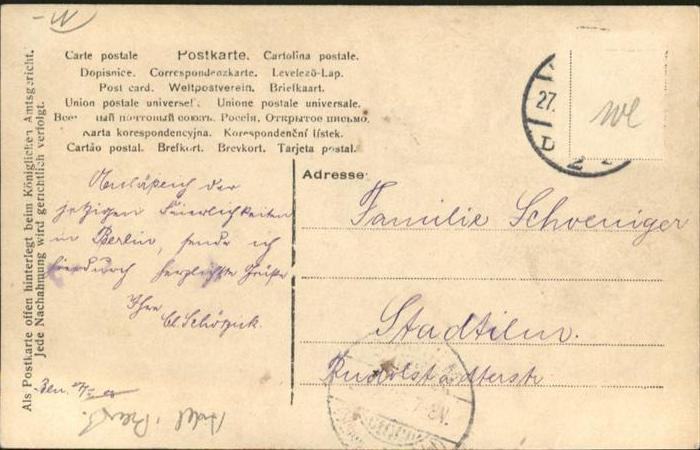 Carte postale Postkarte. Cartolina postale.
Dopisnice. Correspondenzkarte. Levelező-Lap.
Post card. Weltpostverein. Briefkaart.
Union postale universel. Unione postale universale.
ный почтовый союзъ. Россія. Открытое письмо.
Karta korespondencyjna. Korespondenční lístek.
Cartão postal. Brefkort. Brevkort. Tarjeta postal.
Als Postkarte offen hinterlegt beim Königlichen Amtsgericht.
Jede Nachahmung wird gerichtlich verfolgt.
27.
Adresse
Anläßlich der
jetzigen Feierlichkeiten
in Berlin, sende ich
hierdurch herzlichste Grüße
Ihre
Familie Schoeniger
Stadtilm.
Rudolstädterstr.